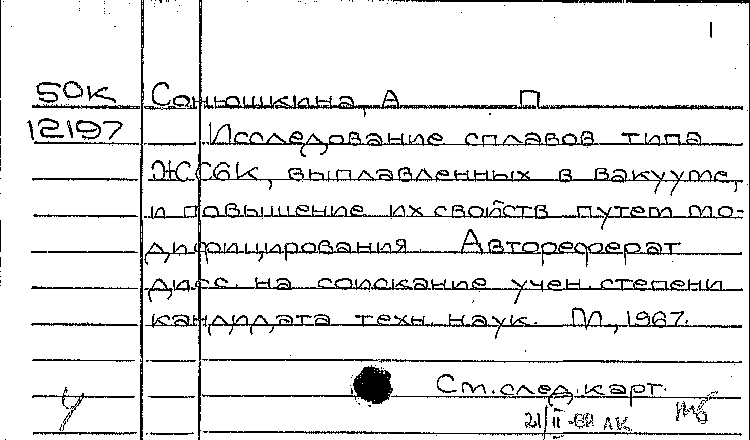 1
50К Сонюшкина, А П
12197 Исследование сплавов типа
ЖС6К, выплавленных в вакууме,
и повышение их свойств путем мо-
дифицирования Автореферат
дисс. на соискание учен. степени
кандидата техн. наук. М., 1967.
См. след. карт.
21/II-68 ЛК